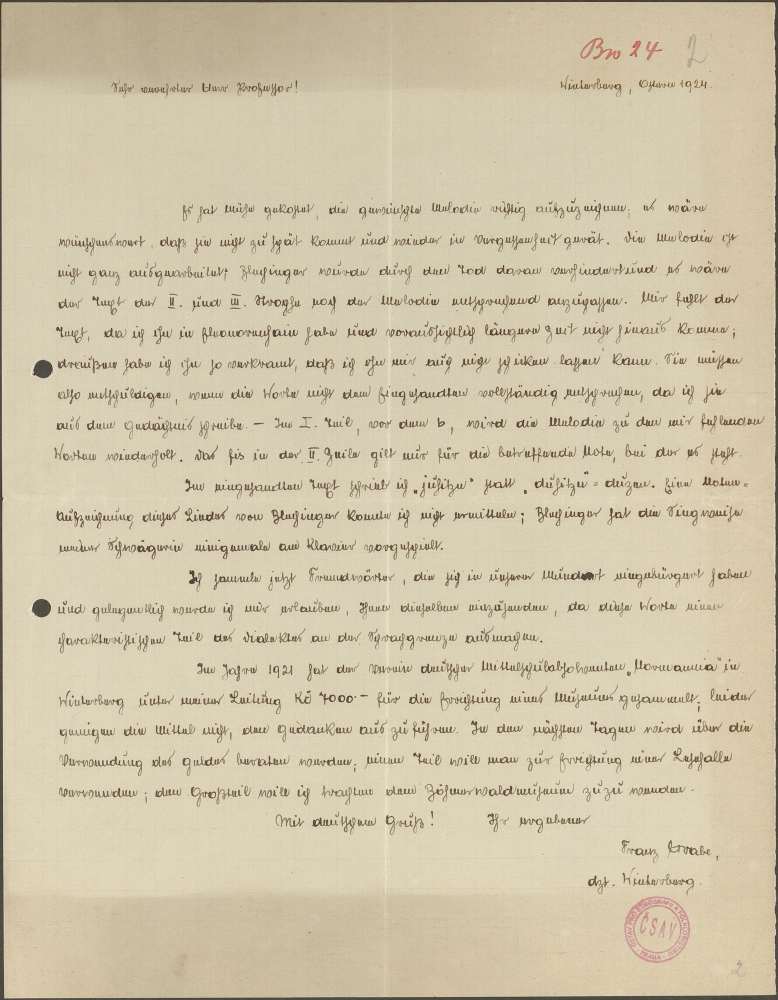 Bw 24 2
Sehr verehrter Herr Professor! Winterberg, Ostern 1924.
Es hat Mühe gekostet, die gewünschte Melodie richtig aufzuzeichnen; es wäre
wünschenswert, daß sie nicht zu spät kommt und wieder in Vergessenheit gerät. Die Melodie ist
nicht ganz ausgearbeitet; Blechinger wurde durch den Tod daran verhindert und es wäre
der Text der II. und III. Strophe noch der Melodie entsprechend anzupassen. Mir fehlt der
Text, da ich ihn in Eleonorenhain habe und voraussichtlich längere Zeit nicht hinaus komme;
draußen habe ich ihn so verkramt, daß ich ihn mir auch nicht schicken lassen kann. Sie müssen
also entschuldigen, wenn die Worte nicht dem Eingesandten vollständig entsprechen, da ich sie
aus dem Gedächtnis schreibe. — Im I. Teil, vor dem b, wird die Melodie zu den mir fehlenden
Worten wiederholt. Das fis in der II. Zeile gilt nur für die betreffende Note, bei der es steht.
Im eingesandten Text schrieb ich „jusitzn" statt „dusitzn" = duzen. Eine Noten-
aufzeichnung dieses Liedes von Blechinger konnte ich nicht ermitteln; Blechinger hat die Singweise
meiner Schwägerin einigemale am Klavier vorgespielt.
Ich sammle jetzt Fremdwörter, die sich in unserer Mundart eingebürgert haben
und gelegentlich werde ich mir erlauben, Ihnen dieselben einzusenden, da diese Worte einen
charakteristischen Teil des Dialektes an der Sprachgrenze ausmachen.
Im Jahre 1921 hat der Verein deutscher Mittelschulabsolventen „Normannia" in
Winterberg unter meiner Leitung Kč 7000·— für die Errichtung eines Museums gesammelt; leider
genügen die Mittel nicht, den Gedanken auszuführen. In den nächsten Tagen wird über die
Verwendung des Geldes beraten werden; einen Teil will man zur Errichtung einer Lesehalle
verwenden; den Großteil will ich trachten dem Böhmerwaldmuseum zuzuwenden.
Mit deutschem Gruß! Ihr ergebener
Franz
dzt. Winterberg.
ČSAV
PRAHA
2